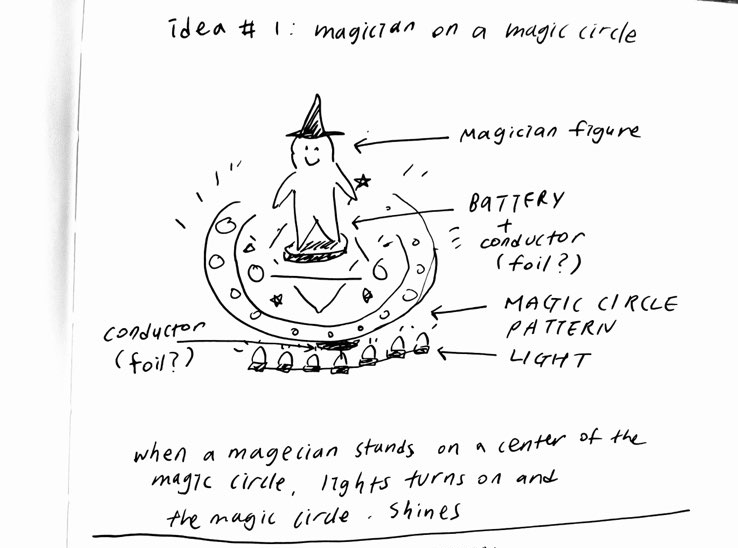 idea # 1: magician on a magic circle
magician figure
BATTERY
+
conductor
(foil?)
MAGIC CIRCLE
PATTERN
conductor
(foil?)
LIGHT
when a magecian stands on a center of the
magic circle, lights turns on and
the magic circle. shines